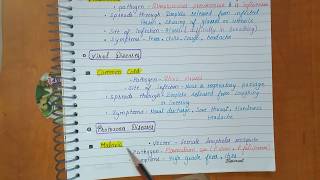 • Pathogen - Streptococcus pneumoniae & H. influenzae
• Spreads through droplets released from infected
person, sharing of glasses or utensils
• Site of Infection - Alveoli (difficulty in breathing)
• Symptoms - Fever, chills, Cough, Headache
Viral Diseases
Common Cold
• Pathogen - Rhino viruses
• Site of Infection - Nose & respiratory passage
• Spreads - through Droplets released from
or Sneezing
• Symptoms - Nasal discharge, Sore throat, Hoarseness
Headache
Protozoan Diseases
Malaria • Vector - female Anopheles mosquito
Pathogen - Plasmodium sp.
Symptoms - High grade fever, chills